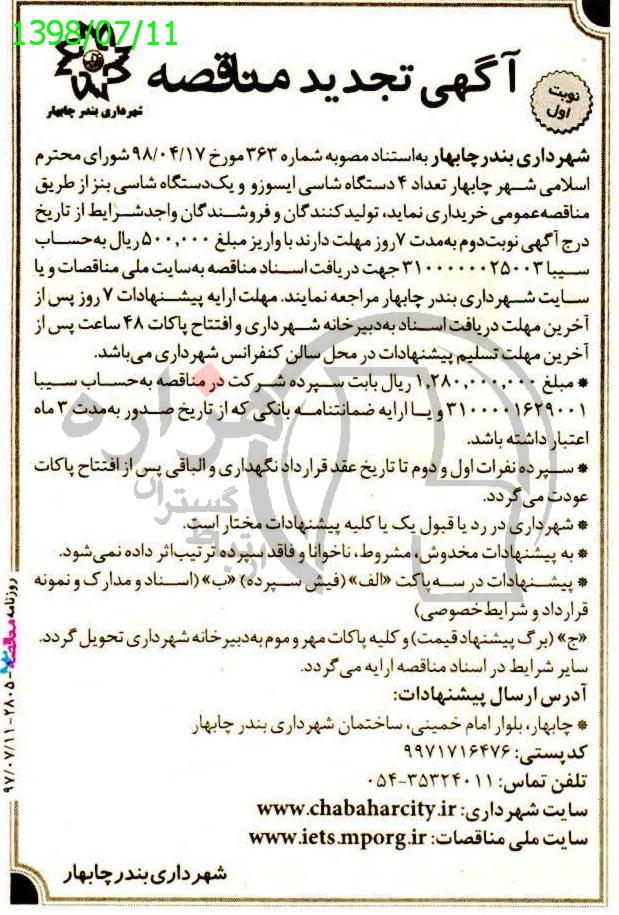 1398/07/11
آگهی تجدید مناقصه
نوبت
اول
شهرداری بندر چابهار
شهرداری بندر چابهار به‌استناد مصوبه شماره ۳۶۳ مورخ ۹۸/۰۴/۱۷ شورای محترم
اسلامی شهر چابهار تعداد ۴ دستگاه شاسی ایسوزو و یک‌دستگاه شاسی بنز از طریق
مناقصه‌عمومی خریداری نماید، تولیدکنندگان و فروشندگان واجدشرایط از تاریخ
درج آگهی نوبت‌دوم به‌مدت ۷روز مهلت دارند با واریز مبلغ ۵۰۰,۰۰۰ ریال به‌حساب
سیبا ۳۱۰۰۰۰۰۰۲۵۰۰۳ جهت دریافت اسناد مناقصه به‌سایت ملی مناقصات و یا
سایت شهرداری بندر چابهار مراجعه نمایند. مهلت ارایه پیشنهادات ۷ روز پس از
آخرین مهلت دریافت اسناد به‌دبیرخانه شهرداری و افتتاح پاکات ۴۸ ساعت پس از
آخرین مهلت تسلیم پیشنهادات در محل سالن کنفرانس شهرداری می‌باشد.
* مبلغ ۱,۲۸۰,۰۰۰,۰۰۰ ریال بابت سپرده شرکت در مناقصه به‌حساب سیبا
۳۱۰۰۰۰۱۶۲۹۰۰۱ و یا ارایه ضمانتنامه بانکی که از تاریخ صدور به‌مدت ۳ ماه
اعتبار داشته باشد.
* سپرده نفرات اول و دوم تا تاریخ عقد قرارداد نگهداری و الباقی پس از افتتاح پاکات
عودت می‌گردد.
* شهرداری در رد یا قبول یک یا کلیه پیشنهادات مختار است.
* به پیشنهادات مخدوش، مشروط، ناخوانا و فاقد سپرده ترتیب‌اثر داده نمی‌شود.
* پیشنهادات در سه‌پاکت «الف» (فیش سپرده) «ب» (اسناد و مدارک و نمونه
قرارداد و شرایط‌خصوصی)
«ج» (برگ پیشنهاد قیمت) و کلیه پاکات مهر و موم به‌دبیرخانه شهرداری تحویل گردد.
سایر شرایط در اسناد مناقصه ارایه می‌گردد.
آدرس ارسال پیشنهادات:
* چابهار، بلوار امام خمینی، ساختمان شهرداری بندر چابهار
کدپستی: ۹۹۷۱۷۱۶۴۷۶
تلفن تماس: ۳۵۳۲۴۰۱۱-۰۵۴
سایت شهرداری: www.chabaharcity.ir
سایت ملی مناقصات: www.iets.mporg.ir
شهرداری بندر چابهار
روزنامه مناقصه ‌- ۲۸۰۵-۹۷/۰۷/۱۱
هزاره
گستران